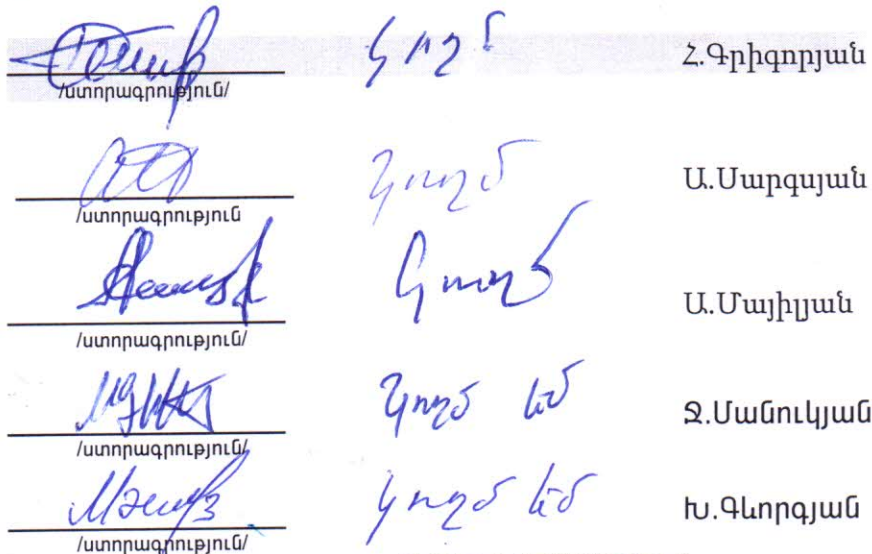 կողմ Հ.Գրիգորյան
/ստորագրություն/
կողմ Ա.Սարգսյան
/ստորագրություն
կողմ Ա.Մայիլյան
/ստորագրություն/
կողմ եմ Ջ.Մանուկյան
/ստորագրություն/
կողմ եմ Խ.Գևորգյան
/ստորագրություն/